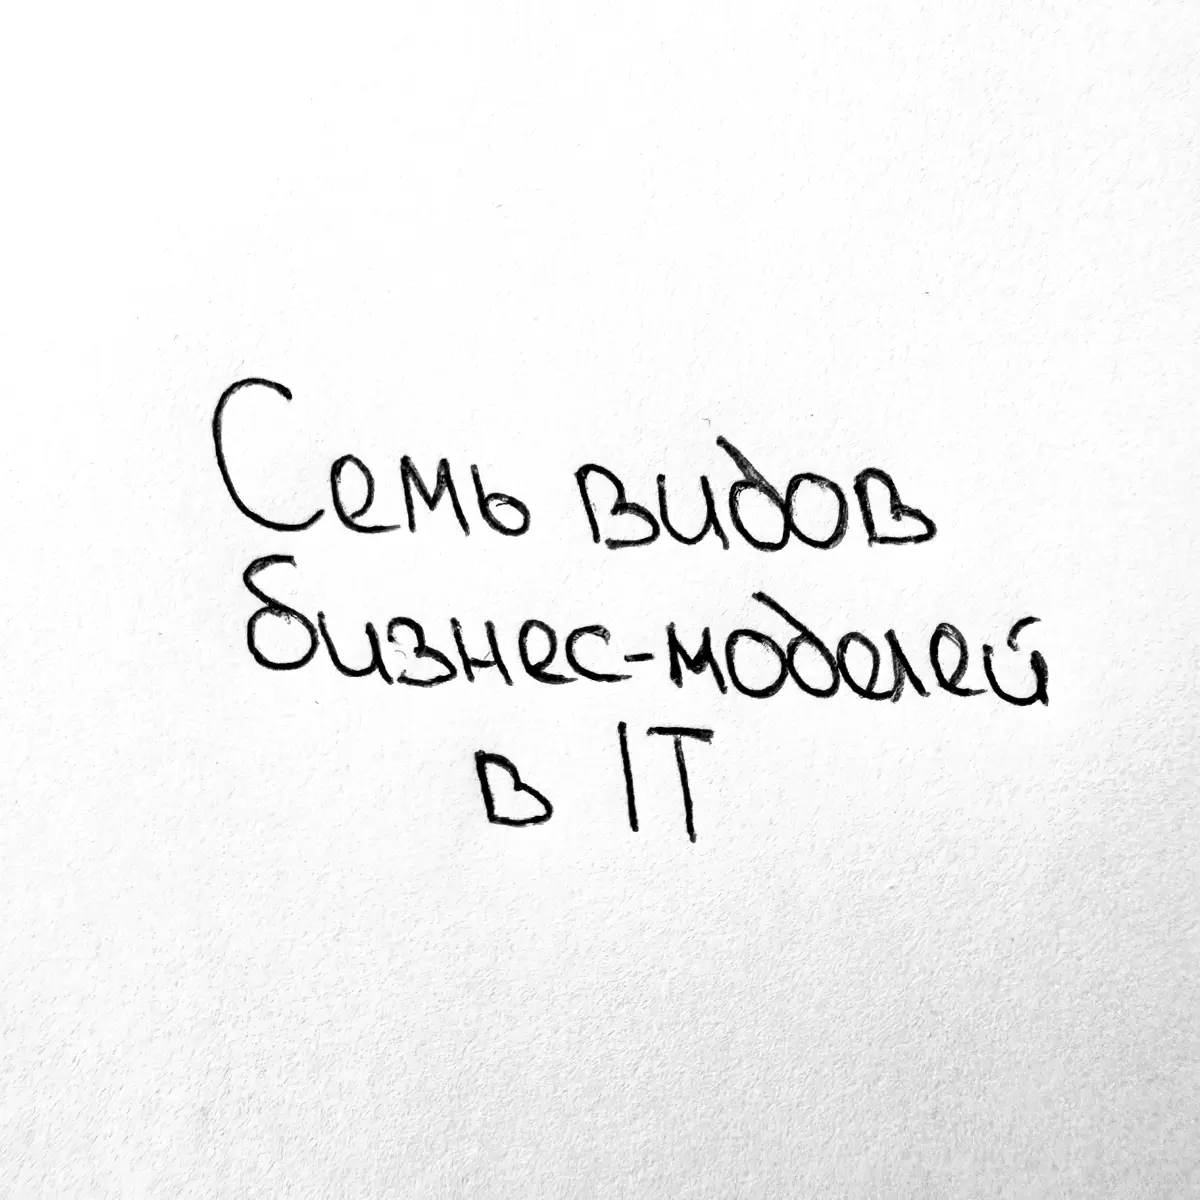 Семь видов
бизнес-моделей
в IT